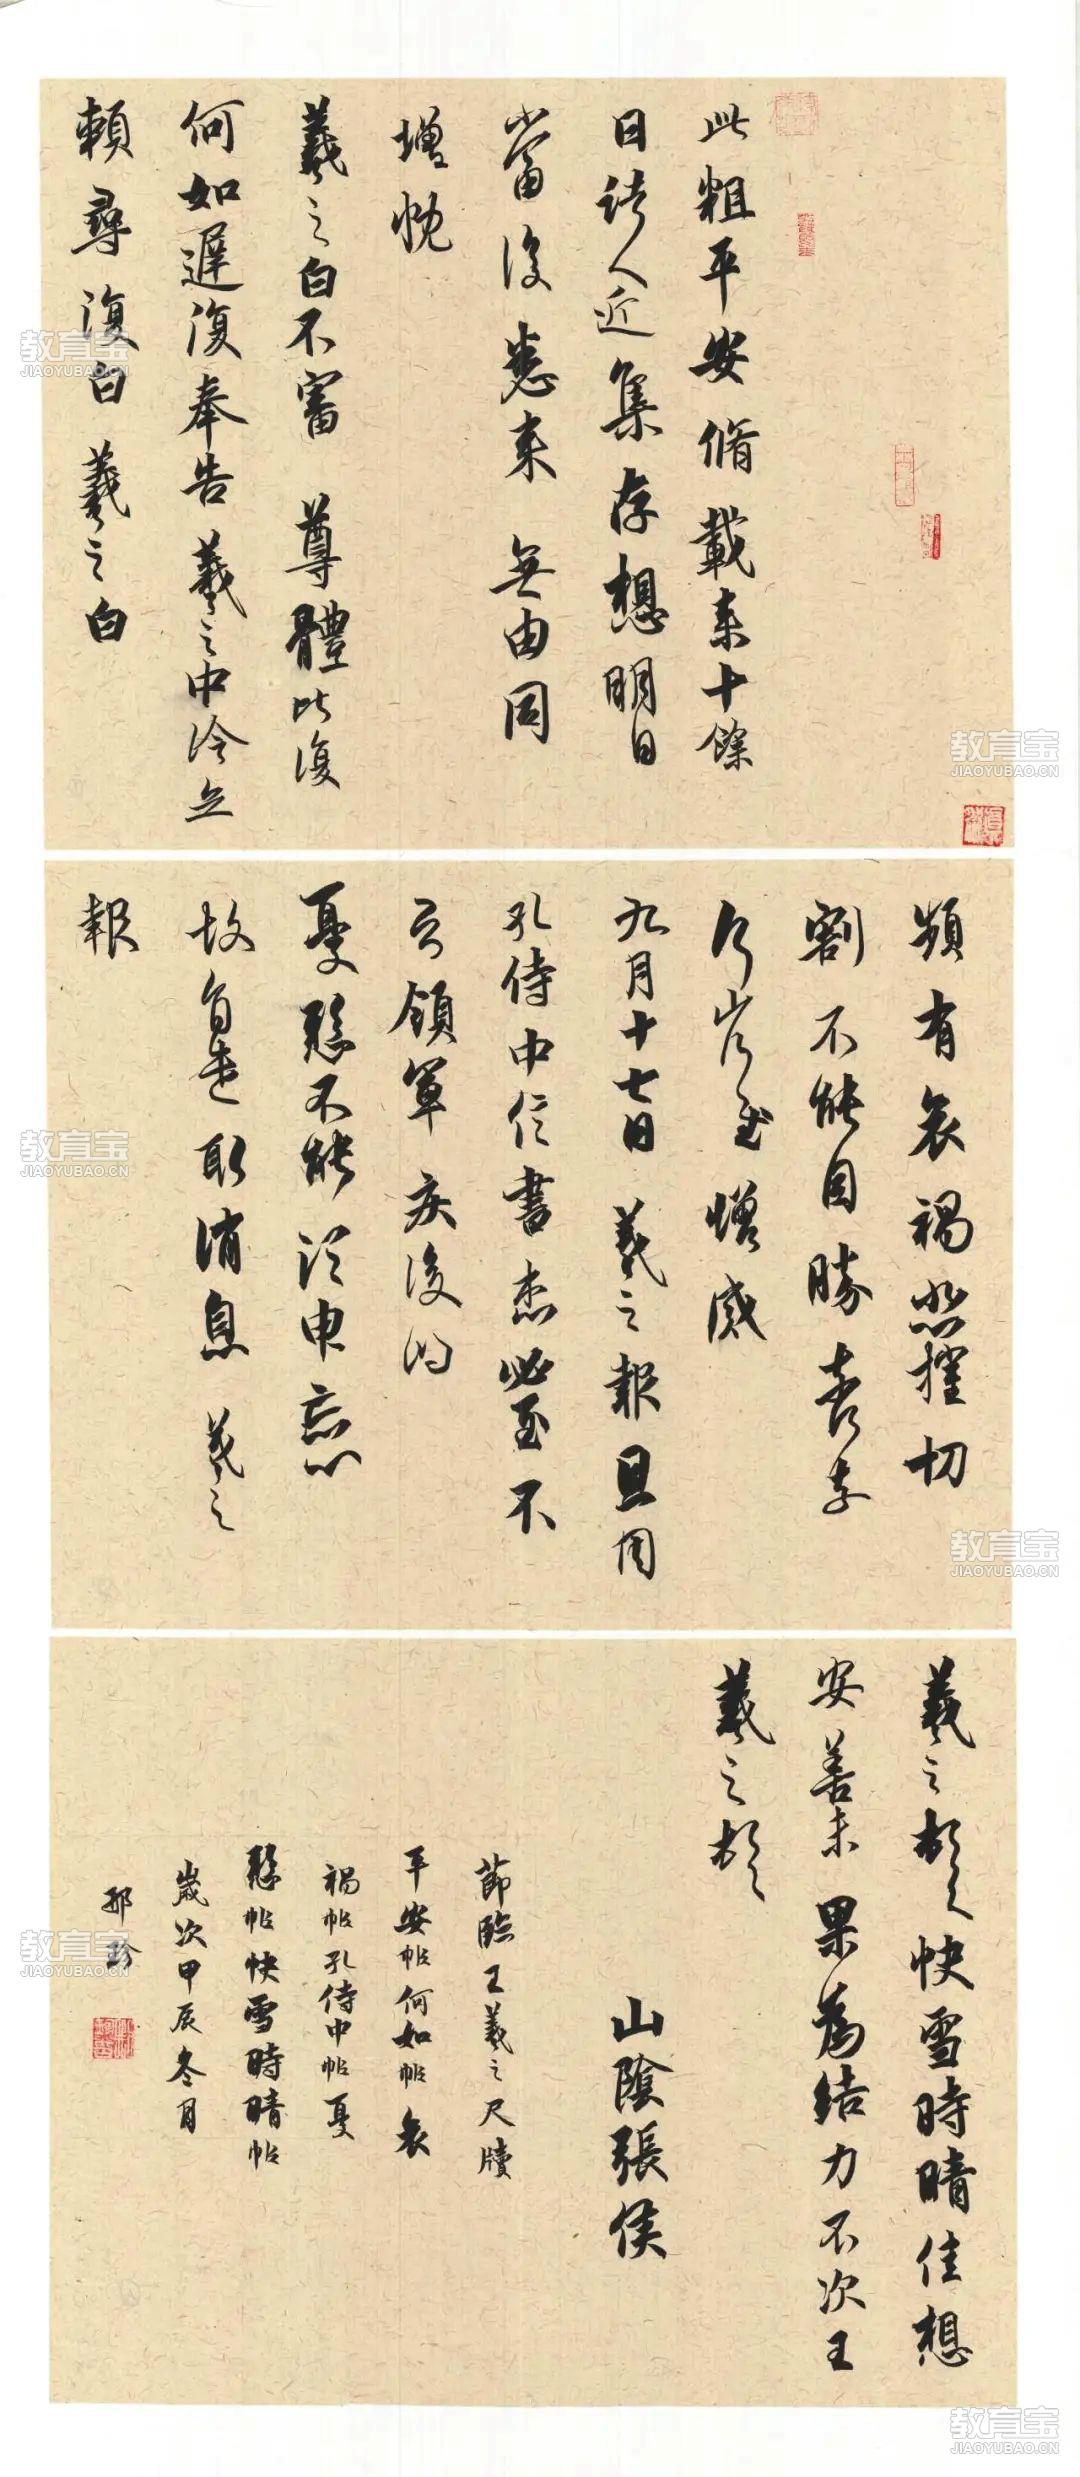 此粗平安脩載来十餘
日諸人近集存想明日
當復悉来無由同
增慨
羲之白不審尊體比復
何如遲復奉告羲之中冷無
賴尋復白羲之白
頻有哀禍悲摧切
割不能自勝奈何
奈何省慰增感
九月十七日羲之報且因
孔侍中信書想必至不
知領軍疾後問
憂懸不能須臾忘心
故旨遣取消息羲之
報
羲之頓首快雪時晴佳想
安善未果為結力不次王
羲之頓首
山陰張侯
節臨王羲之尺牘
平安帖何如帖哀
禍帖孔侍中帖憂
懸帖快雪時晴帖
歲次甲辰冬月
邢珍
教育宝
JIAOYUBAO.CN
教育宝
JIAOYUBAO.CN
教育宝
JIAOYUBAO.CN
教育宝
JIAOYUBAO.CN
教育宝
JIAOYUBAO.CN
教育宝
JIAOYUBAO.CN